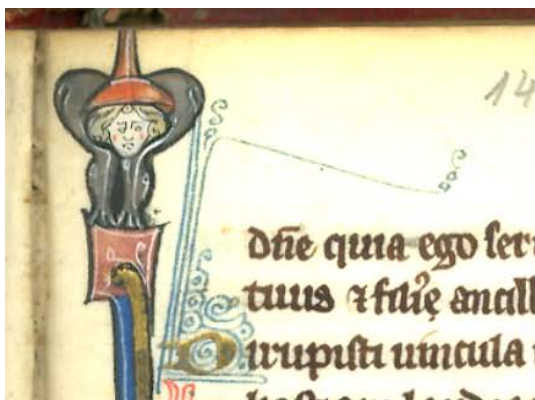 14
dñe quia ego ser
tuus ⁊ filiꝰ ancill
Dirupisti uincula